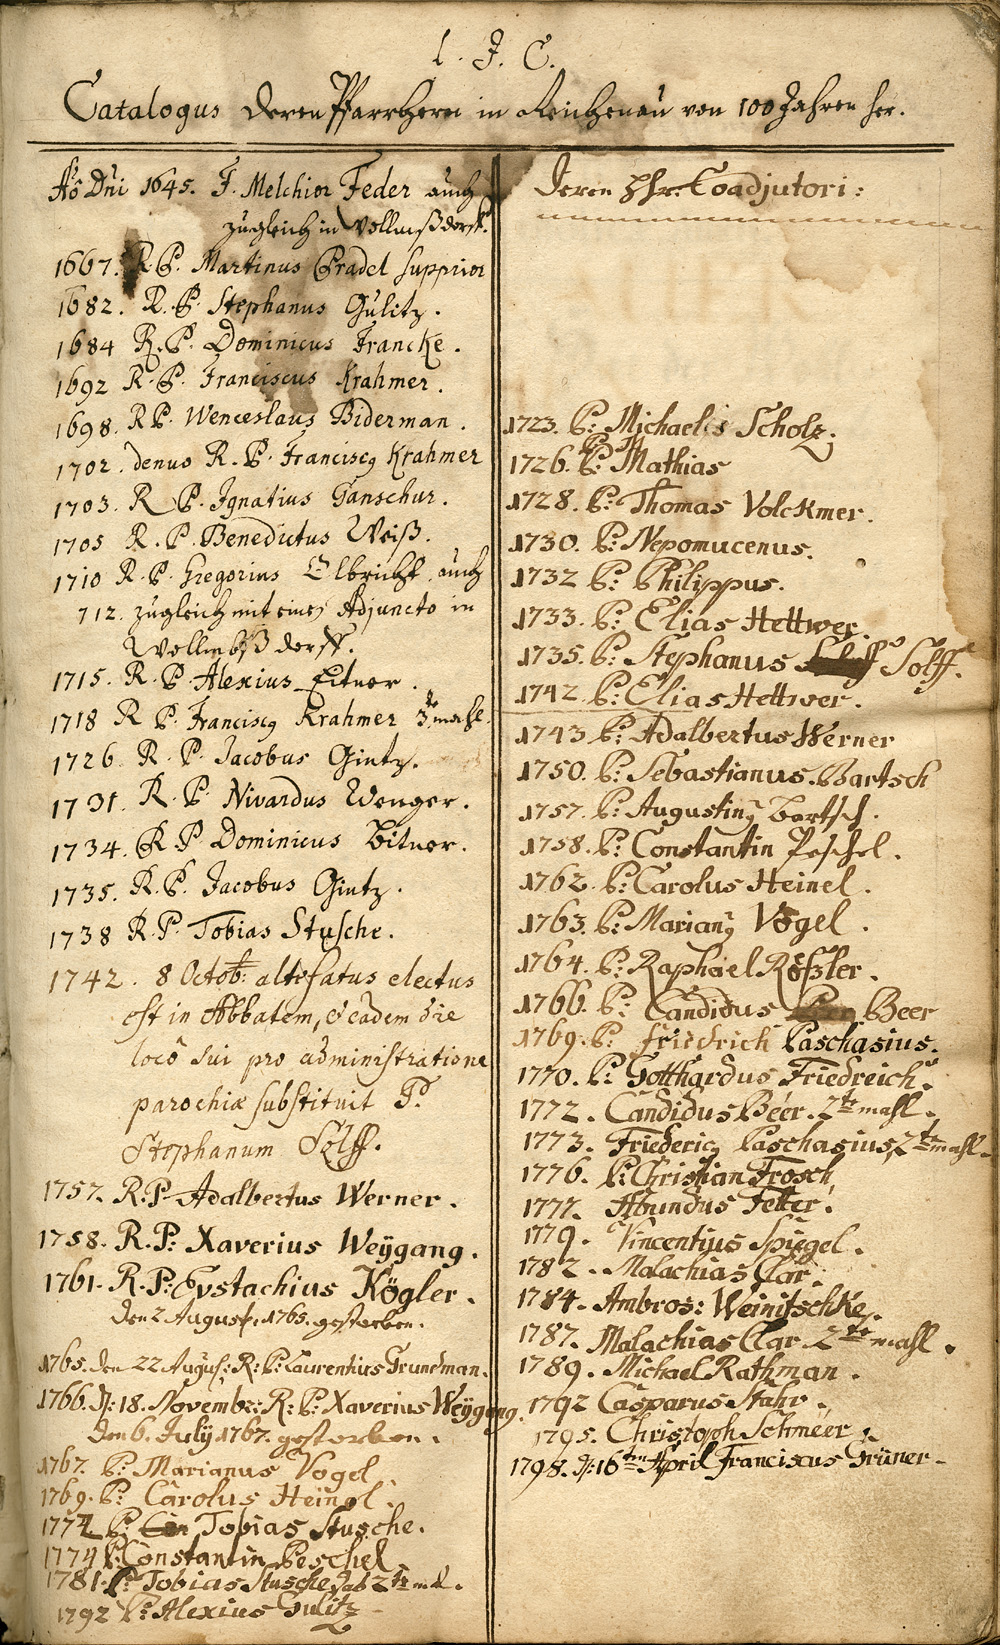 l. J. C.
Catalogus deren Pfarrherrn in Reichenau von 100 Jahren her.
Ao Dni 1645. F. Melchior Feder auch
zugleich in Vollmßdorff.
1667. R. P. Martinus Gradel Supprior
1682. R. P. Stephanus Gulitz.
1684 R. P. Dominicus Francke.
1692 R. P. Franciscus Krahmer.
1698. R P. Wenceslaus Biderman.
1702. denuo R. P. Franciscq Krahmer
1703. R P. Ignatius Ganschur.
1705 R. P. Benedictus Weiß.
1710 R. P. Gregorius Olbricht auch
712. zugleich mit einem Adjuncto in
Vollmbßdorff.
1715. R. P. Alexius Eitner.
1718 R P. Franciscq Krahmer 3te mahl.
1726. R. P. Jacobus Gintz.
1731. R. P. Nivardus Wenger.
1734. R P Dominicus Bitner.
1735. R. P. Jacobus Gintz.
1738 R. P. Tobias Stusche.
1742. 8 Octob: altefatus electus
est in Abbatem, & eadem die
loco sui pro administratione
parochiæ substituit P.
Stephanum Solff.
1757. R. P. Adalbertus Werner.
1758. R. P: Xaverius Weÿgang.
1761. R. P: Eustachius Kögler.
den 2 August. 1765. gestorben.
1765. den 22 August: R: P: Laurentius Grundman.
1766. D: 18. Novembr: R: P: Xaverius Weÿgang.
den 6. Julÿ 1767. gestorben.
1767. P: Marianus Vogel
1769. P: Carolus Heinel.
1772 P: Tobias Stusche.
1774 P: Constantin Peschel
1781. P: Tobias Stusche das 2te mal.
1792 P: Alexius Gulitz
Deren Hhr: Coadjutori:
1723. P: Michaelis Scholz.
1726. P: Mathias
1728. P: Thomas Volckmer.
1730. P: Nepomucenus.
1732 P: Philippus.
1733. P: Elias Hettwer.
1735. P: Stephanus Solff.
1742. P: Elias Hettwer.
1743 P: Adalbertus Werner
1750. P: Sebastianus Bartsch
1757. P: Augustinq Bartsch.
1758. P: Constantin Peschel.
1762. P: Carolus Heinel.
1763. P: Marianq Vogel.
1764. P: Raphael Rößler.
1766. P: Candidus Beer
1769. P: Friedrich Paschasius.
1770. P: Gotthardus Friedreich.
1772. Candidus Beer. 2te mahl.
1773. Friedericq Paschasius, 2te mahl.
1776. P: Christian Frosch
1777. Abundus Fetter.
1779. Vincentius Spügel.
1782. Malachias Clar.
1784. Ambros: Weinitschke.
1787. Malachias Clar 2te mahl.
1789. Michael Rathman.
1792 Casparus Stahr.
1795. Christoph Schmeer.
1798. D: 16ten April Franciscus Grüner